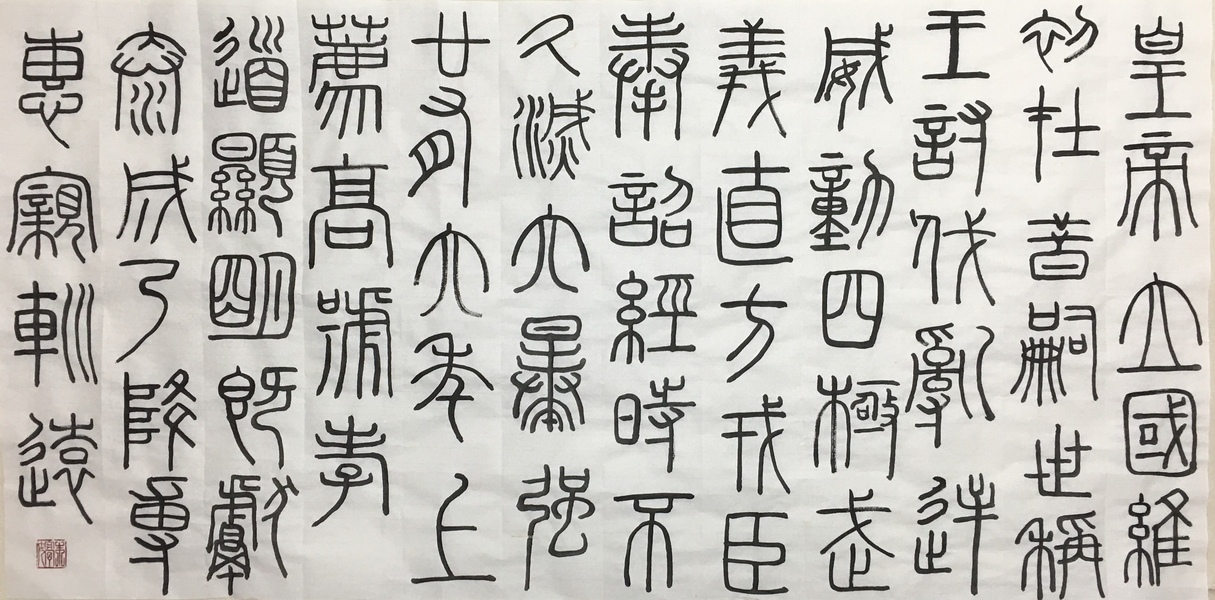 皇帝立國維
初在昔嗣世稱
王討伐亂逆
威動四極武
義直方戎臣
奉詔經時不
久滅六暴強
廿有六年上
薦高號孝
道顯明既獻
泰成乃降專
惠親巡遠